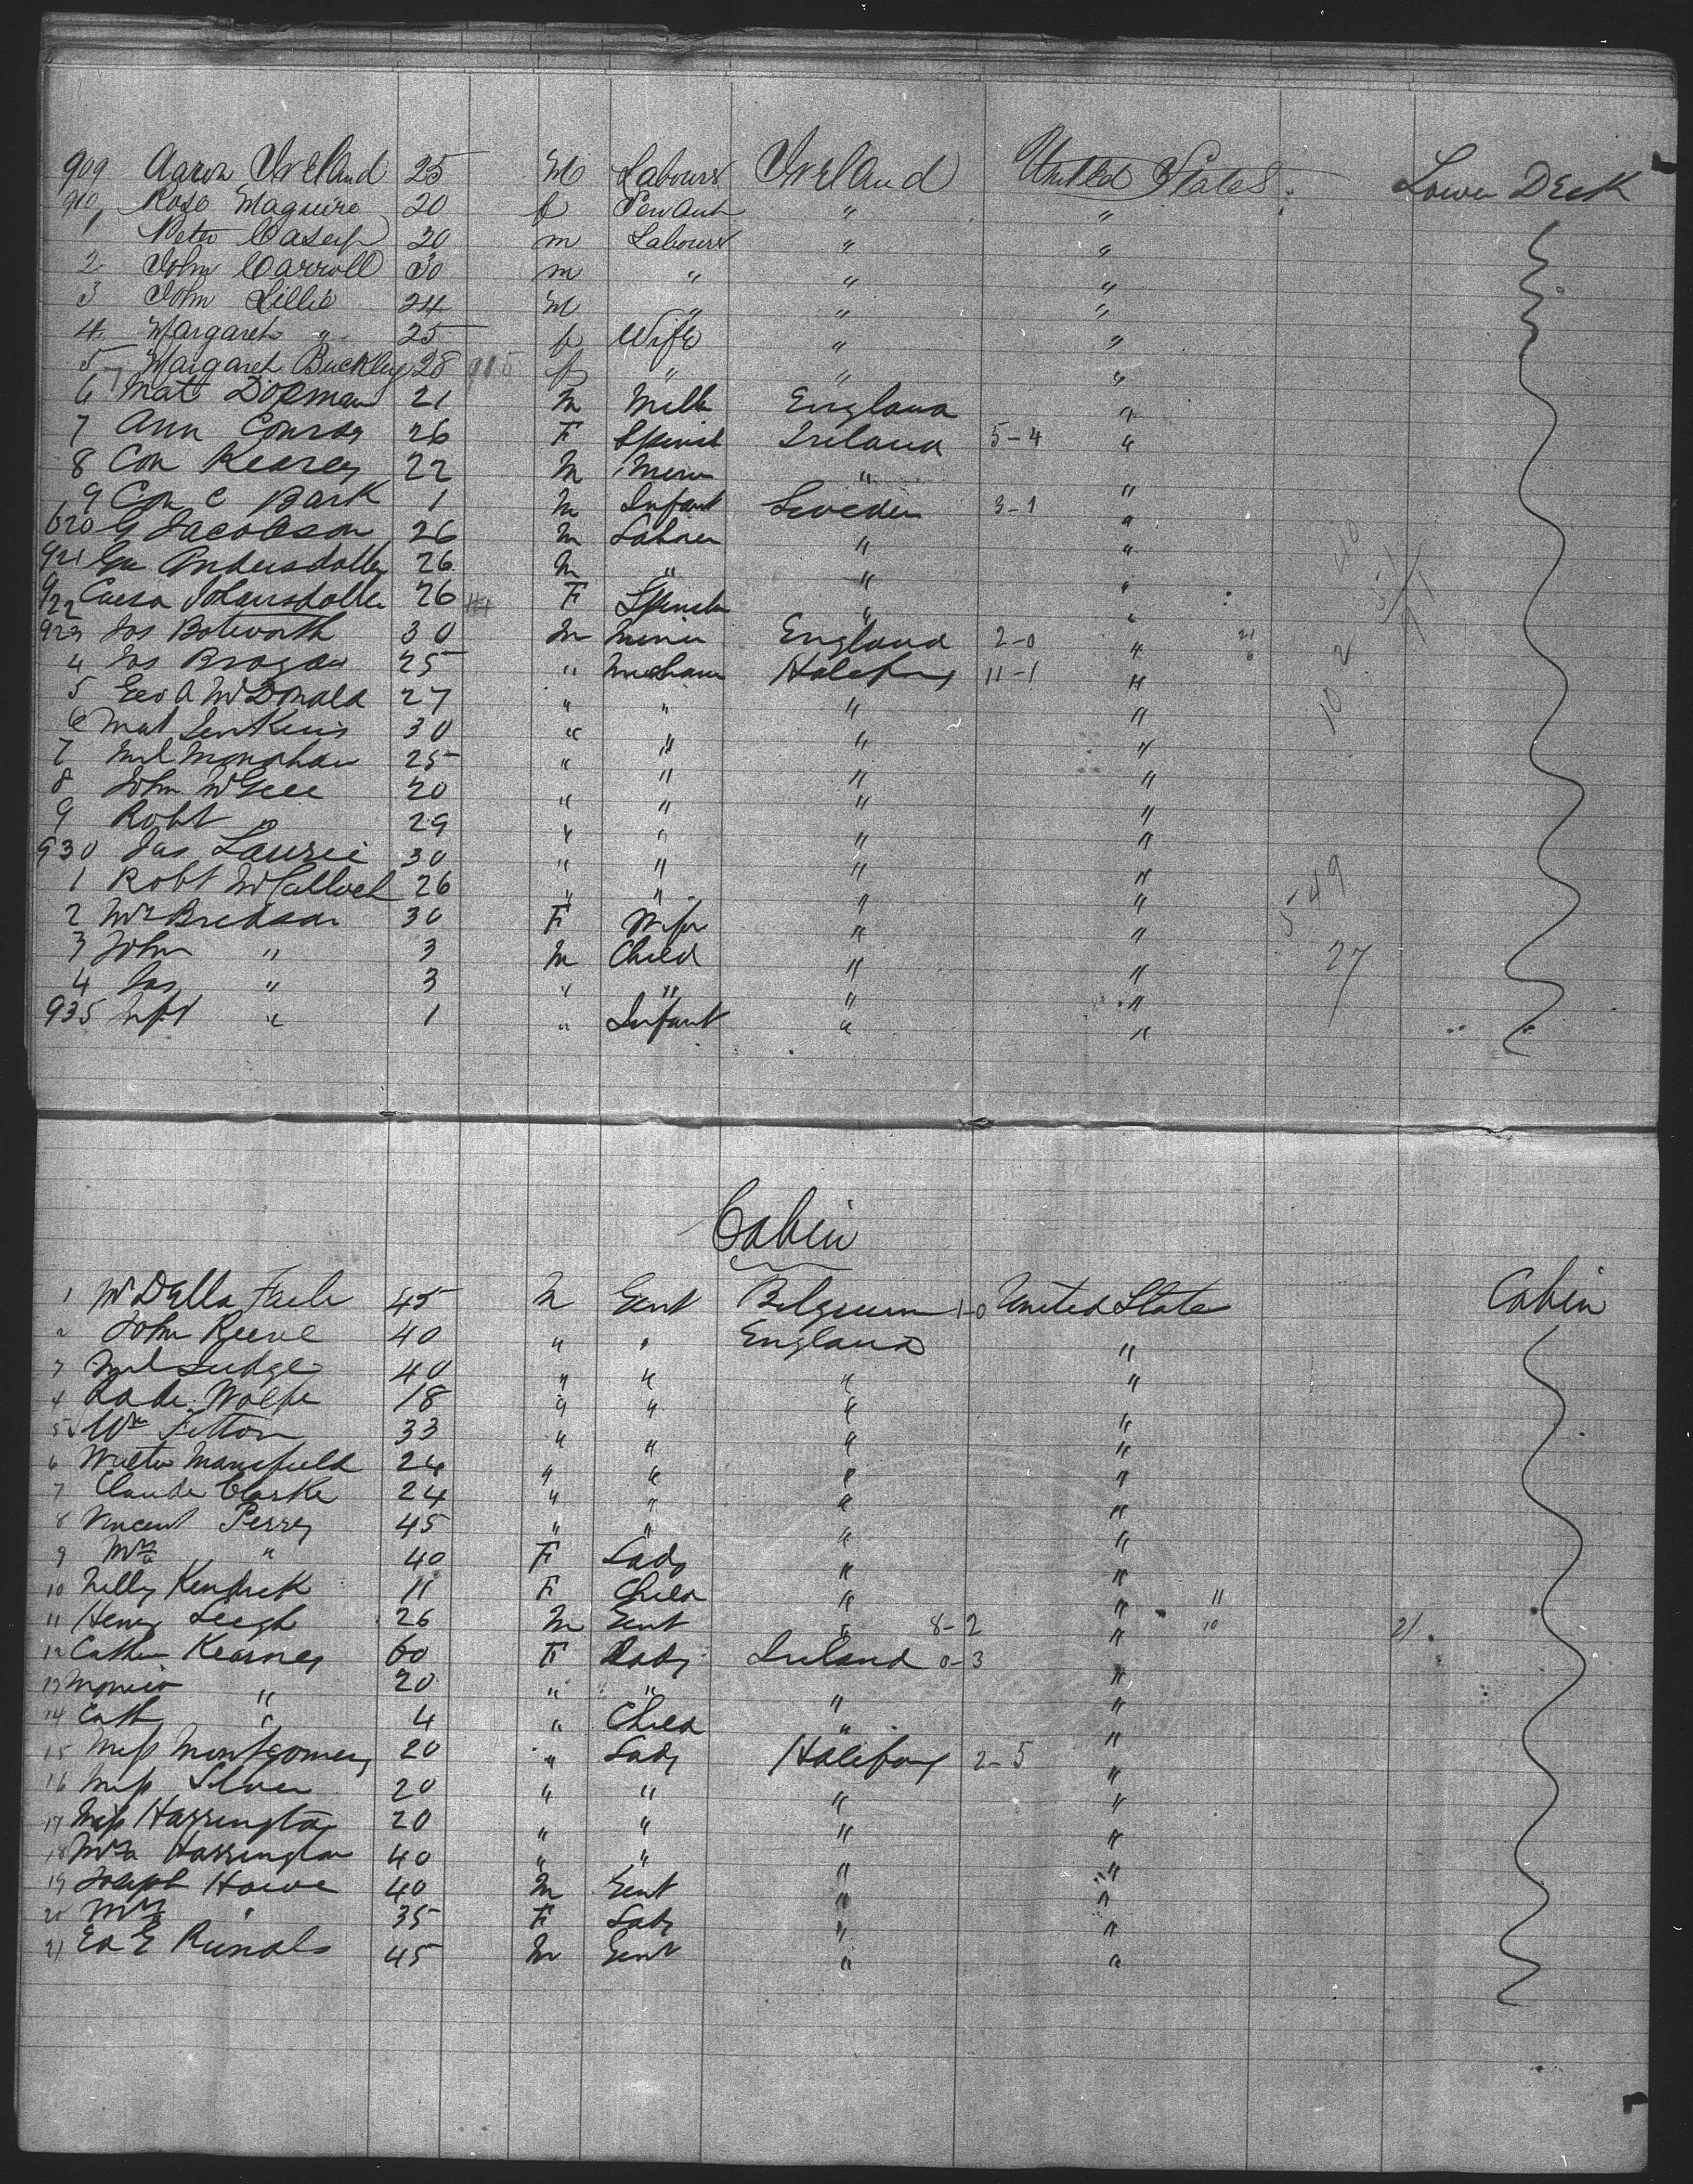 909 Aaron Ireland 25 M Labourr Ireland United States. Lower Deck
910 Rose Maguire 20 f Servant " "
1 Peter Casey 20 m Labourr " "
2 John Carroll 30 m " " "
3 John Lillie 24 M " " "
4 Margaret " 25 f Wife " "
5 Margaret Buckley 28 915 f " " "
6 Matt Dorman 21 M England "
7 Ann Conroy 26 F Spinst Ireland 5-4 "
8 Con Kearey 22 M Miner " "
9 C Bark 1 M Infant Sweden 3-1 "
920 G Jacobson 26 M Laborer " "
921 Andersdotter 26 M " " "
922 Johansdotter 26 F Spinster " "
923 Jos Botworth 30 M Miner England 2-0 "
4 Jos Brogan 25 " Mechanic Halifax 11-1 "
5 Geo A McDonald 27 " " " "
6 Mat Jenkins 30 " " " "
7 Ml Monahan 25 " " " "
8 John McGee 20 " " " "
9 Robt " 29 " " " "
930 Jas Laurie 30 " " " "
1 Robt McCulloch 26 " " " "
2 Mrs 30 F Wife " "
3 John " 3 M Child " " 27
4 Jas " 3 " " " "
935 Inft " 1 " Infant " "
Cabin
1 M Della Faile 45 M Gent Belgium 1-0 United State Cabin
2 John Reeve 40 " " England "
3 Ml Judge 40 " " " "
4 Wolfe 18 " " " "
5 Wm Fitton 33 " " " "
6 Walter Mansfield 24 " " " "
7 Claude Clarke 24 " " " "
8 Vincent Perry 45 " " " "
9 Mrs " 40 F Lady " "
10 Nelly Kendrick 11 F Child " " 11
11 Henry Leigh 26 M Gent " 8-2 " 10 21
12 Cathn Kearney 60 F Lady Ireland 0-3 "
13 " 20 " " " "
14 Cath " 4 " Child " "
15 Miss Montgomery 20 " Lady Halifax 2-5 "
16 Miss Silver 20 " " " "
17 Miss Harrington 20 " " " "
18 Mrs Harrington 40 " " " "
19 Joseph Howe 40 M Gent " "
20 Mrs " 35 F Lady " "
21 Ed E Runals 45 M Gent " "